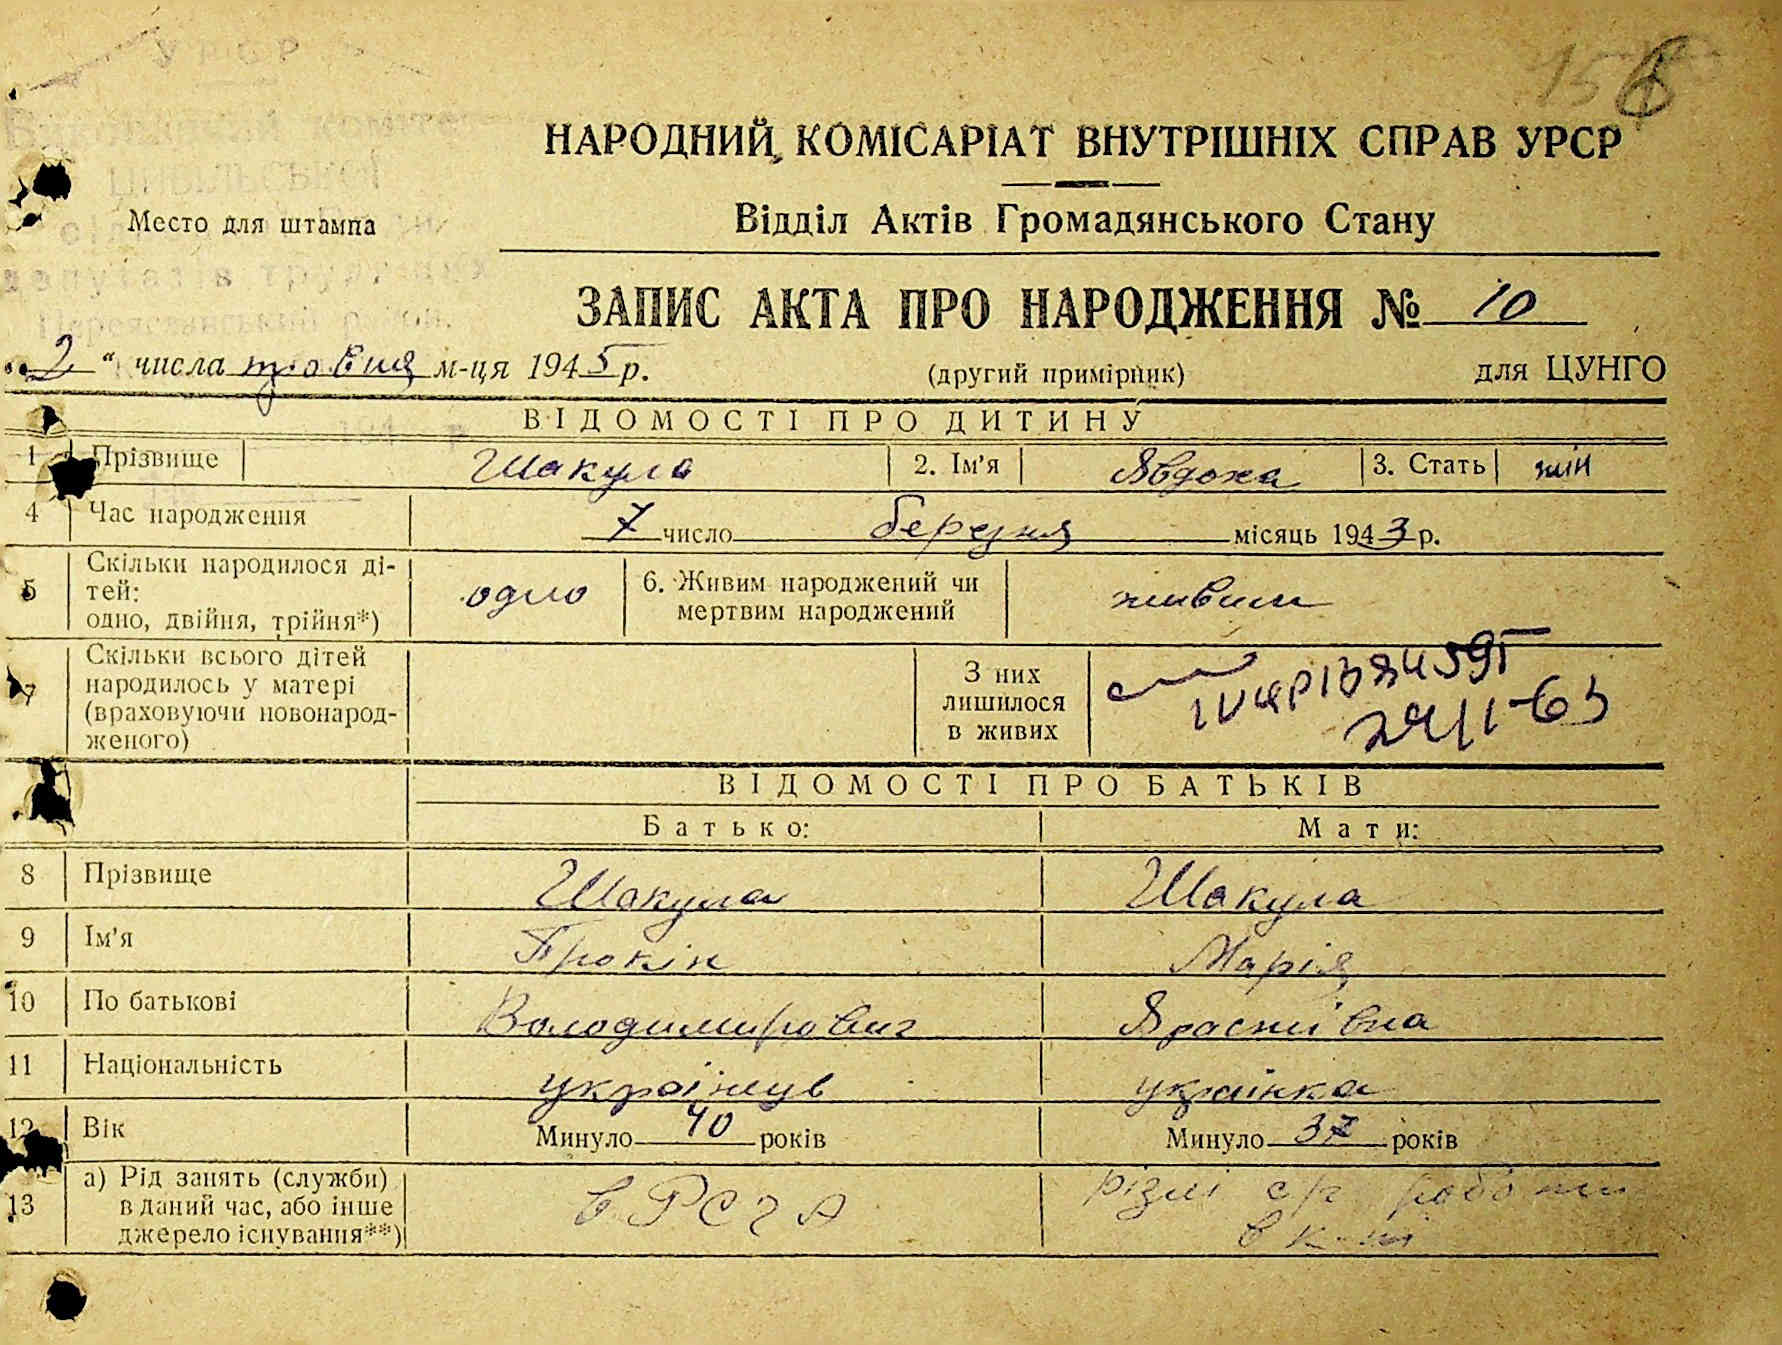 УРСР
156
НАРОДНИЙ КОМІСАРІАТ ВНУТРІШНІХ СПРАВ УРСР
цивільської
Место для штампа
Відділ Актів Громадянського Стану
депутатів трудящих
Переяславський район.
ЗАПИС АКТА ПРО НАРОДЖЕННЯ № 10
„2“ числа травня м-ця 1945 р.
(другий примірник)
для ЦУНГО
ВІДОМОСТІ ПРО ДИТИНУ
1 Прізвище Шакула 2. Ім'я Явдоха 3. Стать жін
4 Час народження 7 число березня місяць 1943 р.
5 Скільки народилося ді-
тей:
одно, двійня, трійня*) одно 6. Живим народжений чи
мертвим народжений живим
7 Скільки всього дітей
народилось у матері
(враховуючи новонарод-
женого)
З них
лишилося
в живих
ВІДОМОСТІ ПРО БАТЬКІВ
Батько: Мати:
8 Прізвище Шакула Шакула
9 Ім'я Прокіп Марія
10 По батькові Володимирович
11 Національність українець українка
12 Вік Минуло 40 років Минуло 37 років
13 а) Рід занять (служби)
в даний час, або інше
джерело існування**) в РСЧА різні с/г роботи